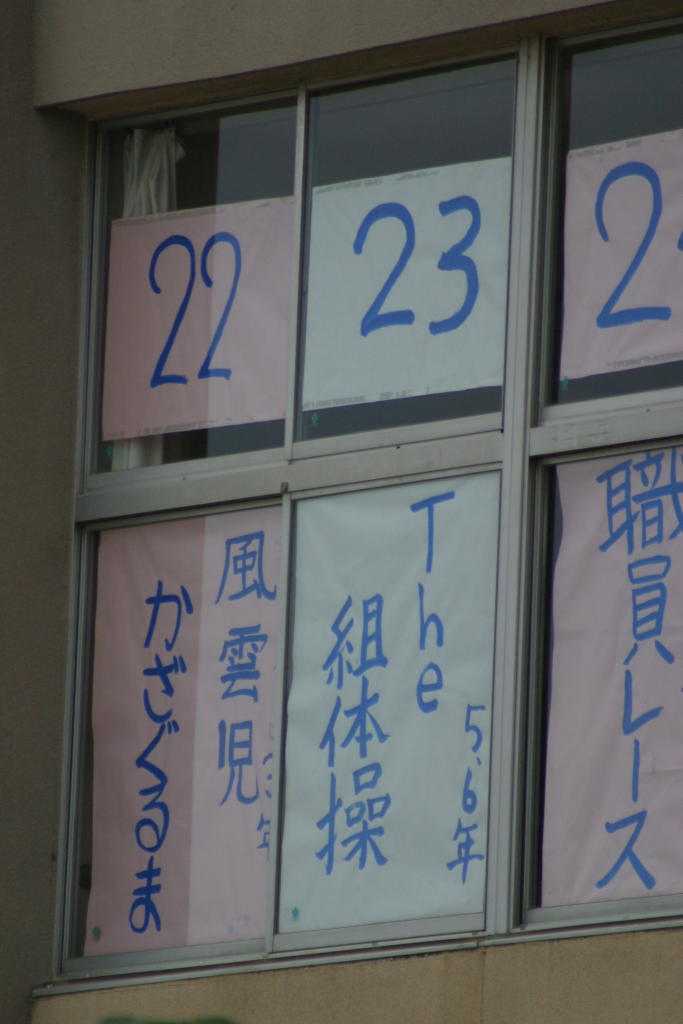 22
23
2
風雲児
かざぐるま
5.6年
The
組体操
職員レース